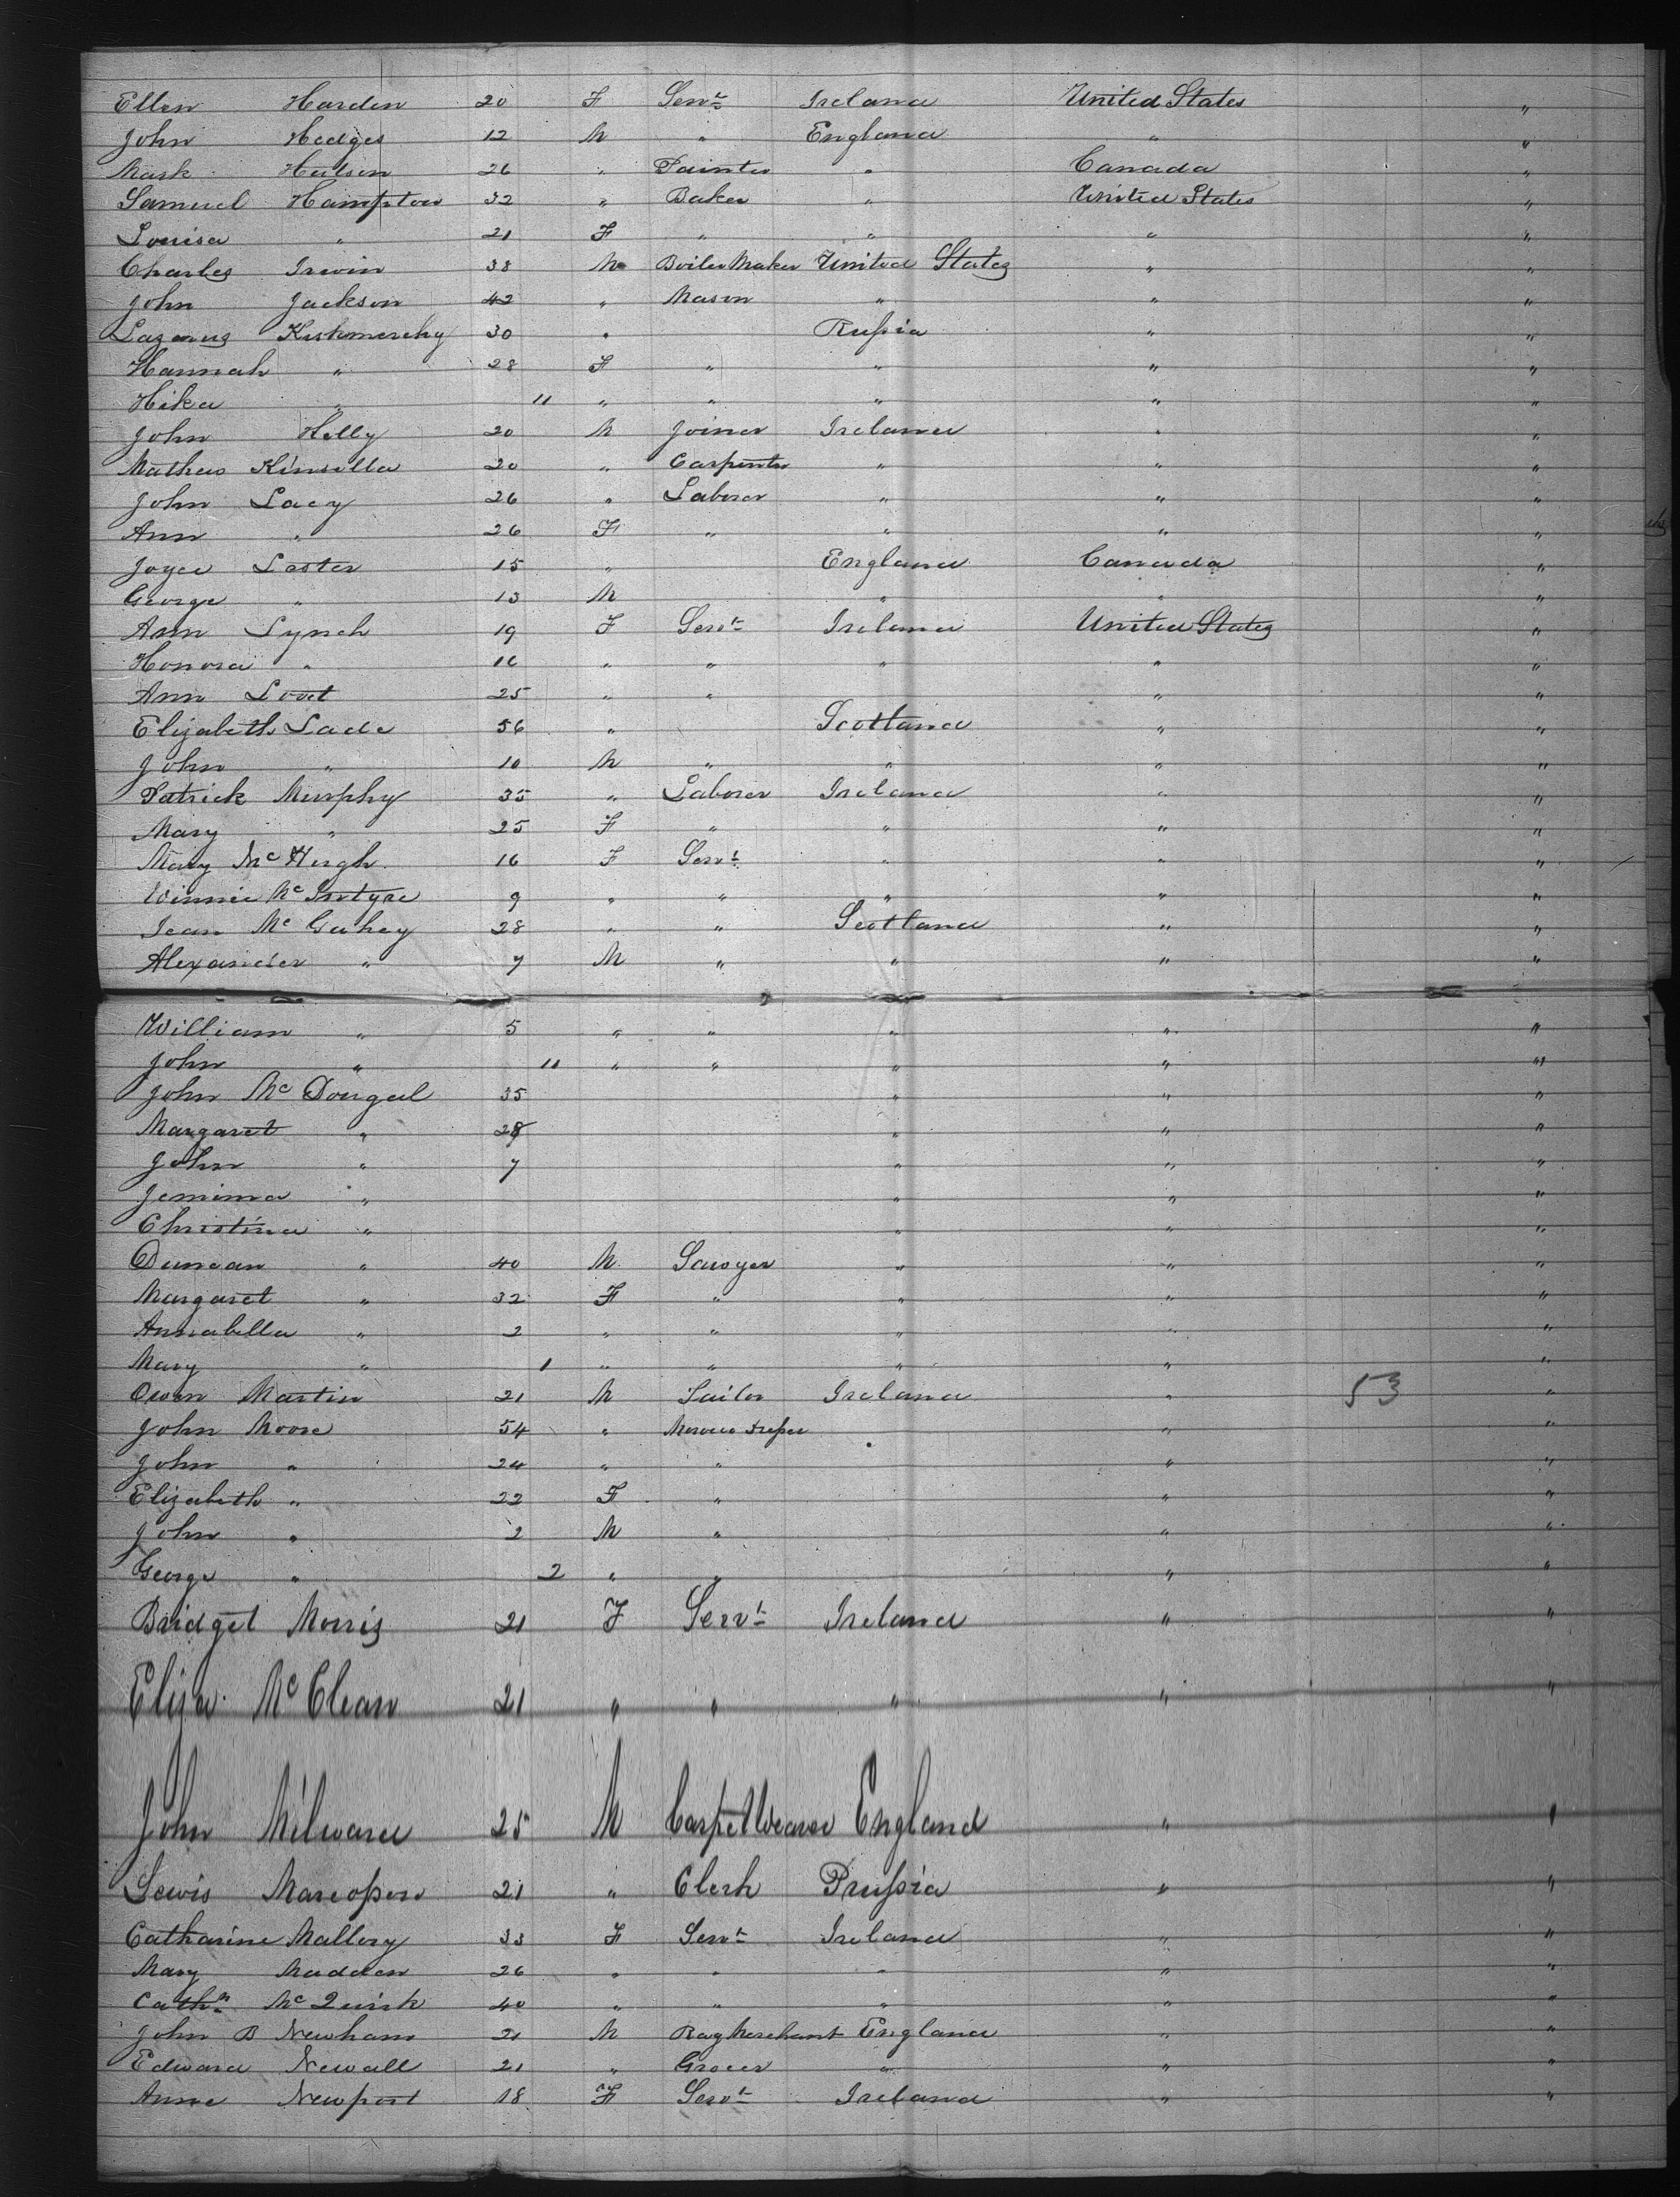 Ellen Harden 20 F Servt Ireland United States "
John Hedges 12 M " England " "
Mark Hutson 26 " Painter " Canada "
Samuel Hampton 32 " Baker " United States "
Louisa " 21 F " " " "
Charles Irwin 38 M Boiler Maker United States " "
John Jackson 42 " Mason " " "
Lazarus 30 " Russia " "
Hannah " 28 F " " " "
Hika " 11 " " " " "
John Kelly 20 M Joiner Ireland " "
Mathew Kinsella 20 " Carpenter " " "
John Lacy 26 " Laborer " " "
Ann " 26 F " " " "
Joyce Laster 15 " England Canada "
George " 13 M " " "
Ann Lynch 19 F Servt Ireland United States "
Honora " 16 " " " " "
Ann Lovet 25 " " " "
Elizabeth Lade 56 " Scotland " "
John " 10 M " " " "
Patrick Murphy 35 " Laborer Ireland " "
Mary " 25 F " " " "
Mary McHugh 16 F Servt " " "
Winnie McIntyre 9 " " " " "
Jean McGahey 28 " " Scotland " "
Alexander " 7 M " " " "
William " 5 " " " " "
John " 11 " " " " "
John McDougal 35 " " "
Margaret " 28 " " "
John " 7 " " "
Jemima " " " "
Christina " " " "
Duncan " 40 M Sawyer " " "
Margaret " 32 F " " " "
Annabella " 2 " " " " "
Mary " 1 " " " " "
Owen Martin 21 M Tailor Ireland " 53 "
John Moore 54 " Morocco Dresser " " "
John " 24 " " " "
Elizabeth " 22 F " " "
John " 2 M " " "
George " 2 " " " "
Bridget Morris 21 F Servt Ireland " "
Eliza McClean 21 " " " " "
John Milward 25 M Carpet Weaver England " "
Lewis 21 " Clerk Prussia " "
Catharine Mallory 33 F Servt Ireland " "
Mary Madden 26 " " " " "
Cathn McQuirk 40 " " " " "
John B Newham 21 M Rag Merchant England " "
Edward Newall 21 " Grocer " " "
Anne Newport 18 F Servt Ireland " "